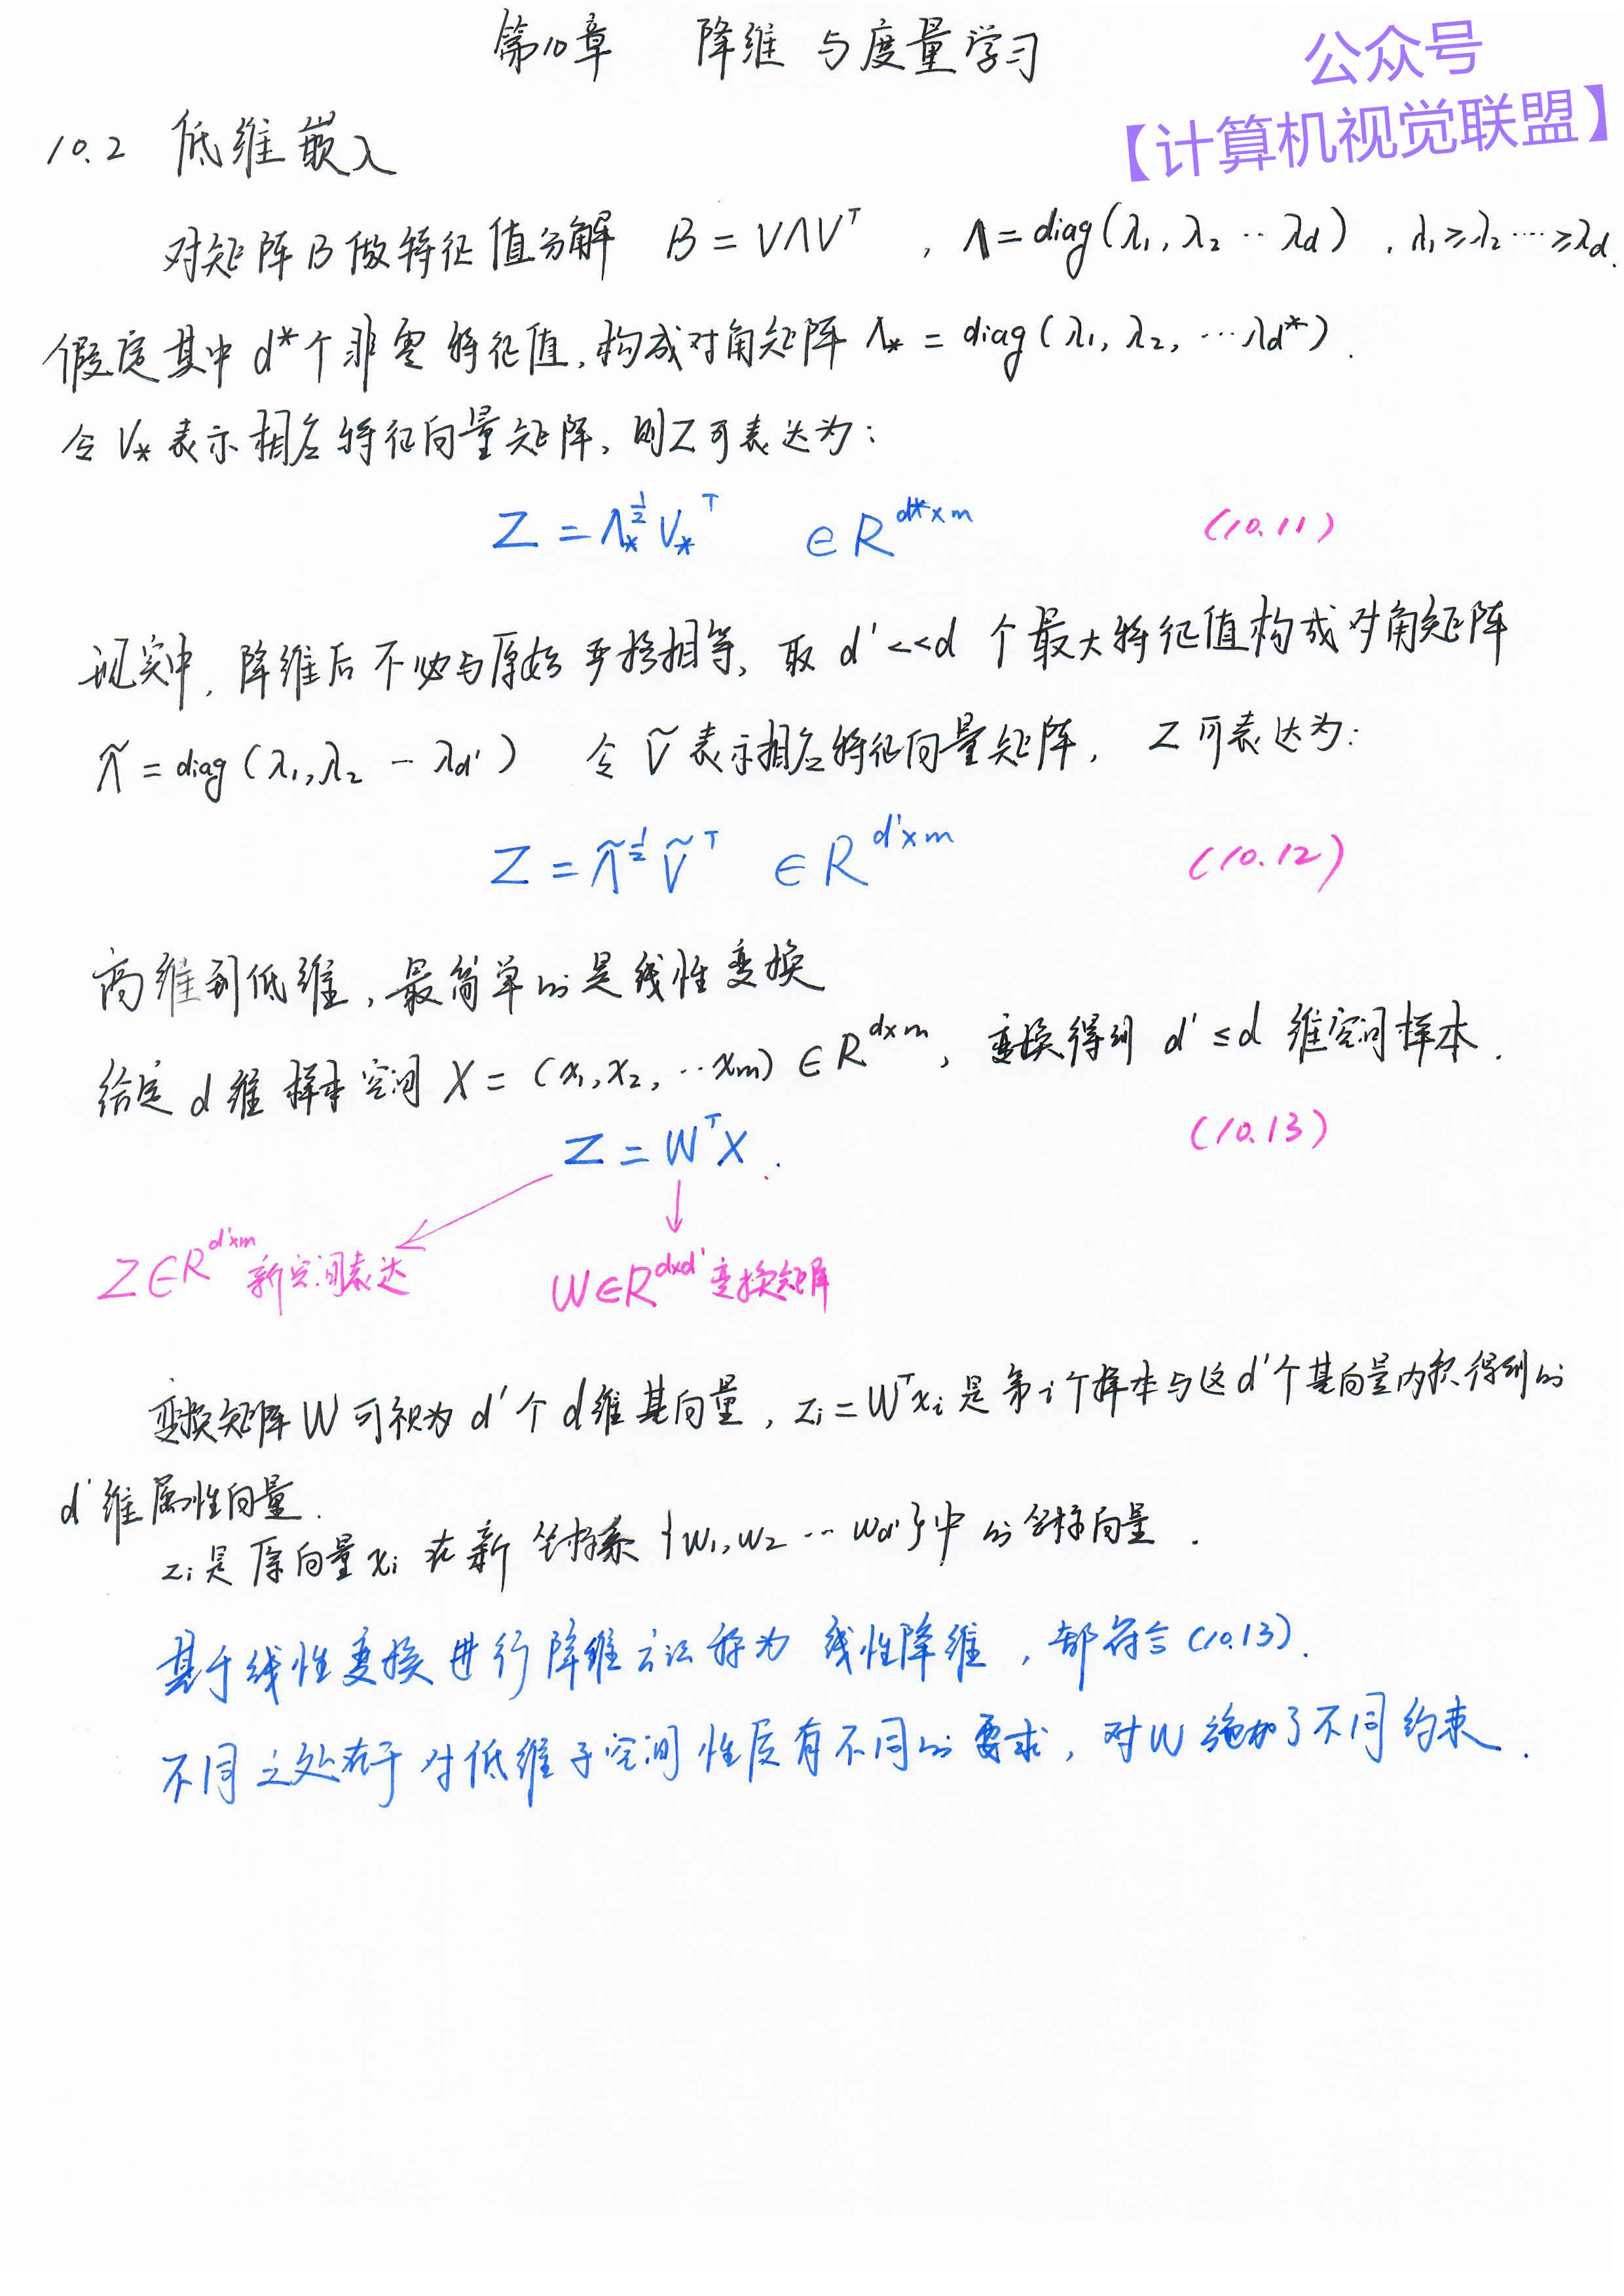 第10章 降维与度量学习
公众号
【计算机视觉联盟】
10.2 低维嵌入
对矩阵B做特征值分解 B = VΛVᵀ , Λ = diag(λ₁, λ₂ ··· λd) , λ₁ ≥ λ₂ ···· ≥ λd.
假定其中 d* 个非零特征值,构成对角矩阵 Λ* = diag(λ₁, λ₂, ···λd*).
令 V* 表示相应特征向量矩阵,则Z可表达为:
Z = Λ*^½ V*ᵀ ∈ R^(d*×m) (10.11)
现实中,降维后不必与原始严格相等,取 d' << d 个最大特征值构成对角矩阵
Λ̃ = diag(λ₁, λ₂ — λd') 令 Ṽ 表示相应特征向量矩阵, Z可表达为:
Z = Λ̃^½ Ṽᵀ ∈ R^(d'×m) (10.12)
高维到低维,最简单的是线性变换
给定 d 维样本空间 X = (x₁, x₂, ··xm) ∈ R^(d×m), 变换得到 d' ≤ d 维空间样本.
Z = WᵀX. (10.13)
Z∈R^(d'×m) 新空间表达 W∈R^(d×d') 变换矩阵
变换矩阵 W 可视为 d' 个 d维基向量, zi = Wᵀxi 是第 i 个样本与这 d' 个基向量内积得到的
d' 维属性向量.
zi 是原向量 xi 在新坐标系 {w₁, w₂ ··· wd'} 中的坐标向量.
基于线性变换进行降维方法称为 线性降维,都符合(10.13).
不同之处在于对低维子空间性质有不同的要求,对W施加了不同约束.